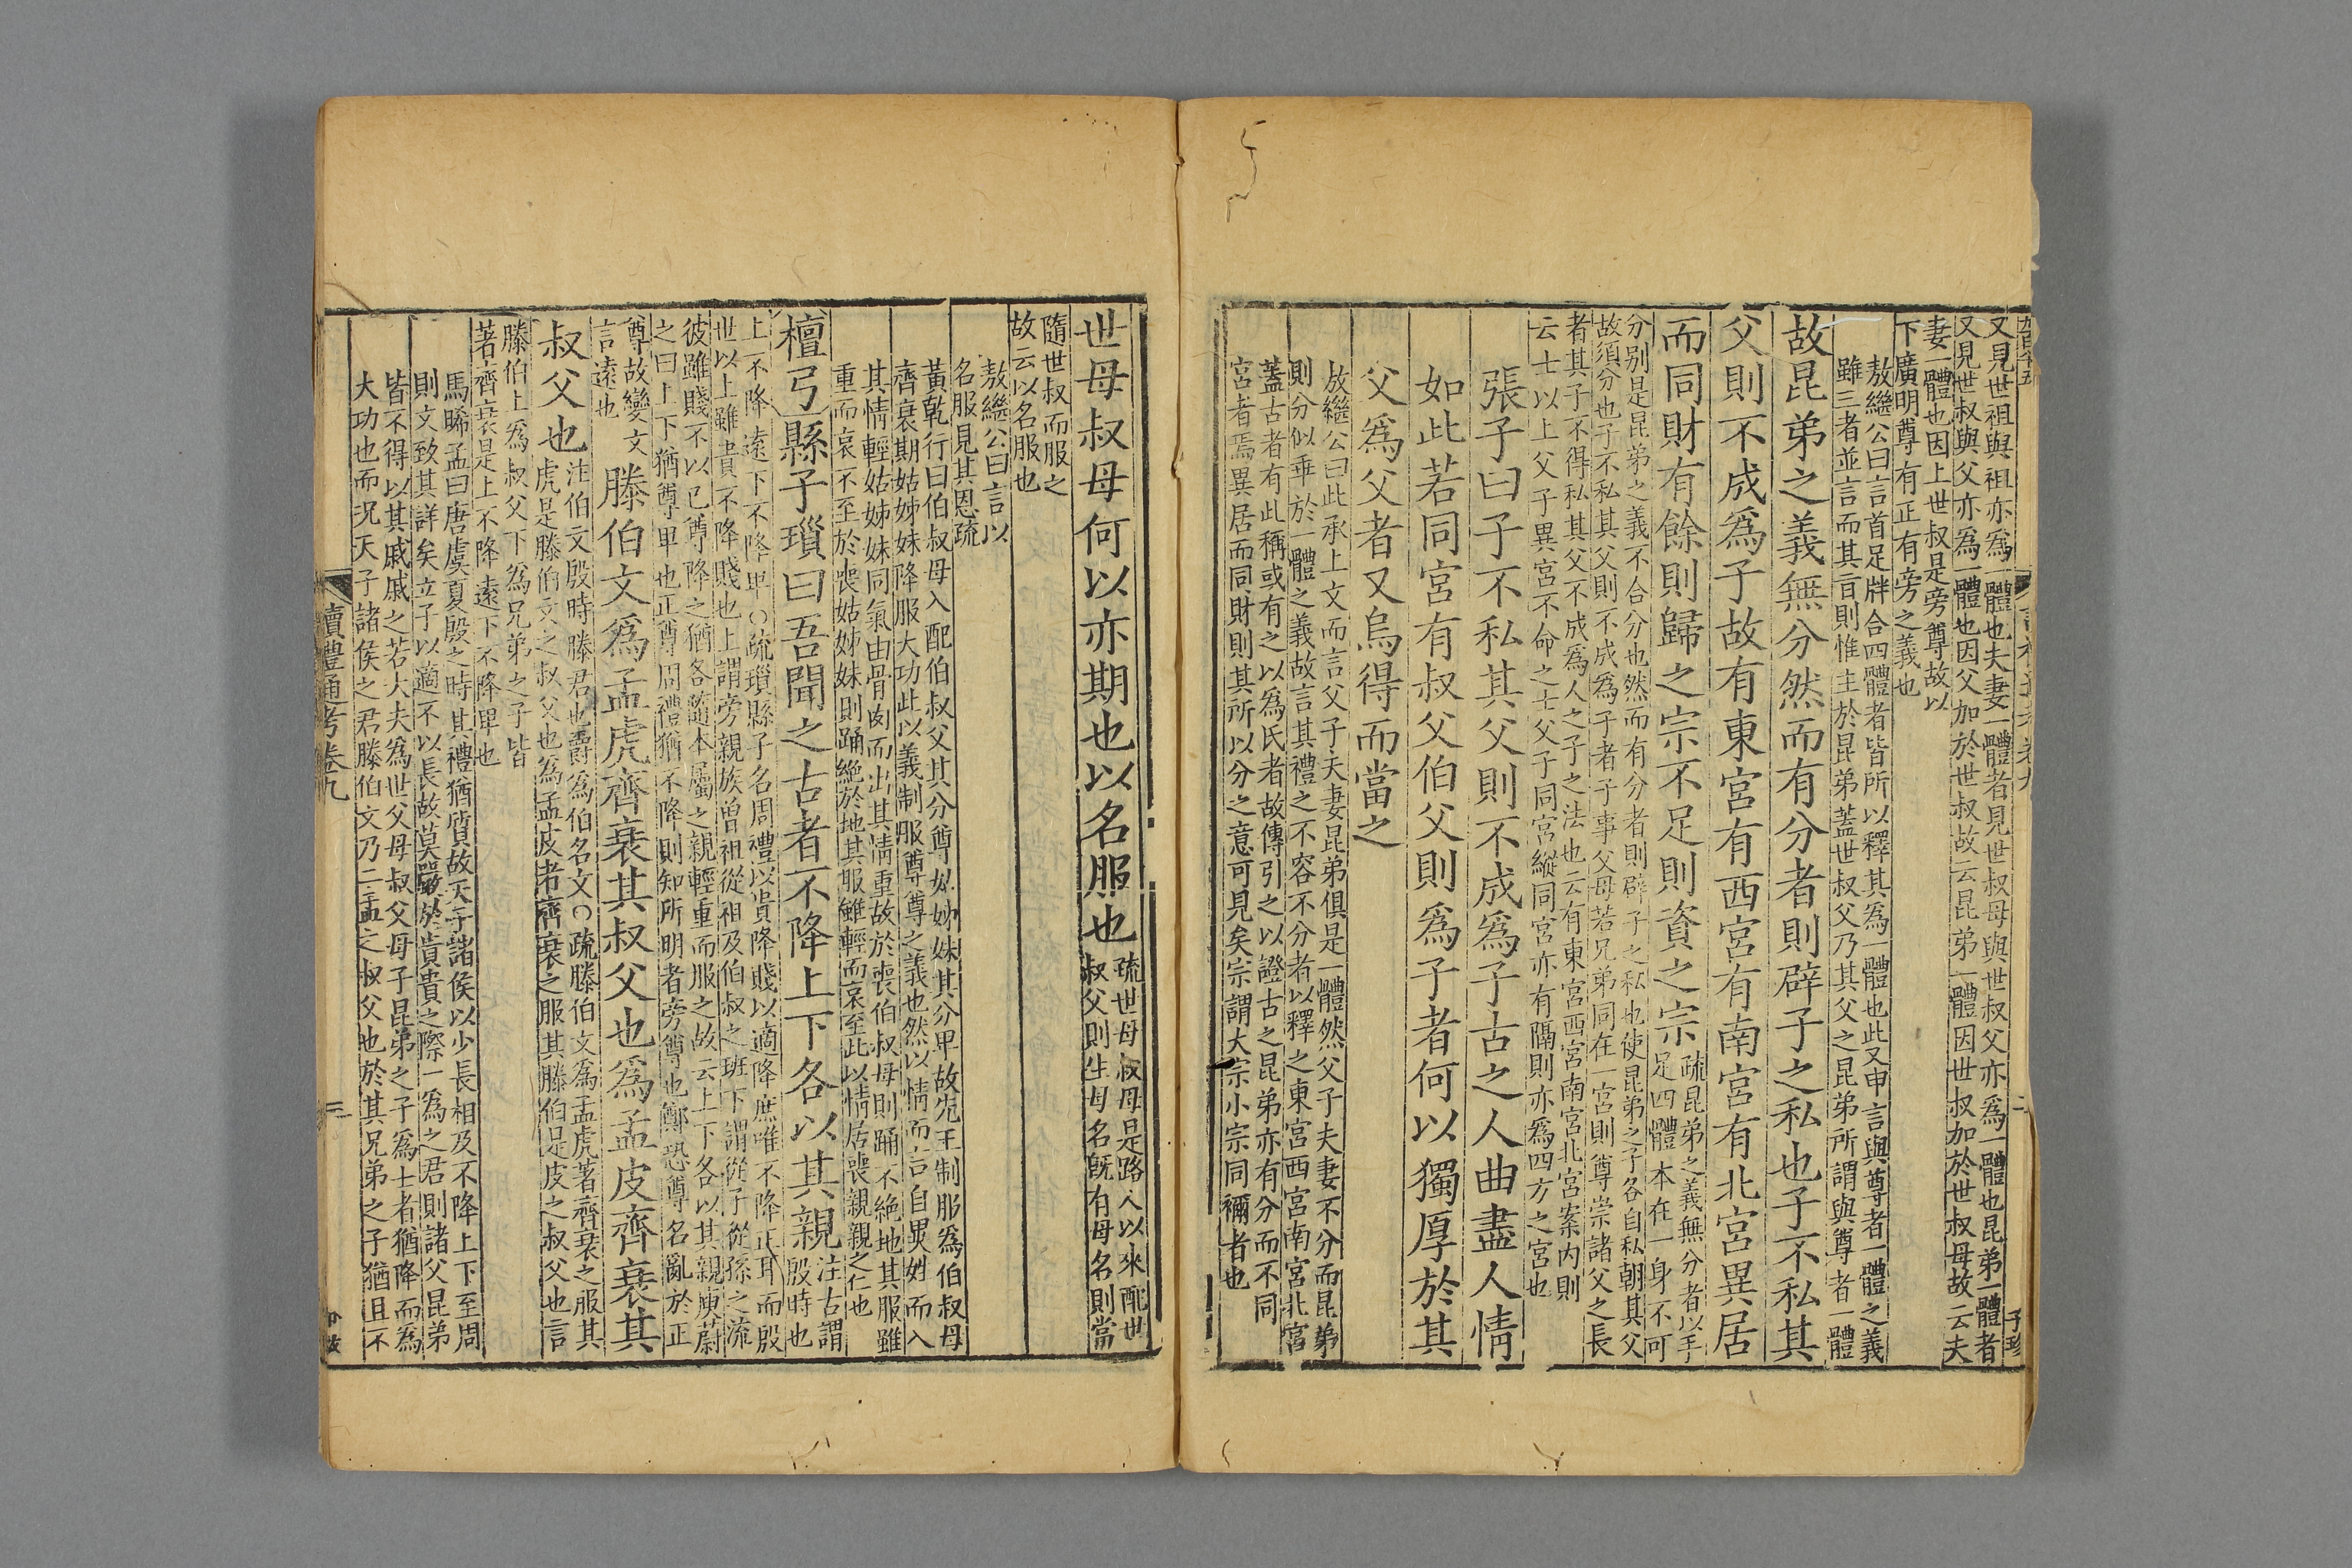 又見世祖與祖亦爲一體也夫妻一體者見世叔母與世叔父亦爲一體也昆弟一體者
又見世叔與父亦爲一體也因父加於世叔故云昆弟一體因世叔加於世叔母故云夫
妻一體也因上世叔是旁尊故以
下廣明尊有正有旁之義也
敖繼公曰言首足牉合四體者皆所以釋其爲一體也此又申言與尊者一體之義
雖三者並言而其旨則惟主於昆弟蓋世叔父乃其父之昆弟所謂與尊者一體
故昆弟之義無分然而有分者則辟子之私也子不私其
父則不成爲子故有東宮有西宮有南宮有北宮異居
而同財有餘則歸之宗不足則資之宗
疏昆弟之義無分者以手
足四體本在一身不可
分別是昆弟之義不合分也然而有分者則辟子之私也使昆弟之子各自私朝其父
故須分也子不私其父則不成爲子者子事父母若兄弟同在一宮則尊崇諸父之長
者其子不得私其父不成爲人之子之法也云有東宮西宮南宮北宮案内則
云士以上父子異宮不命之士父子同宮縱同宮亦有隔則亦爲四方之宮也
張子曰子不私其父則不成爲子古之人曲盡人情
如此若同宮有叔父伯父則爲子者何以獨厚於其
父爲父者又烏得而當之
敖繼公曰此承上文而言父子夫妻昆弟俱是一體然父子夫妻不分而昆弟
則分似乖於一體之義故言其禮之不容不分者以釋之東宮西宮南宮北宮
蓋古者有此稱或有之以爲氏者故傳引之以證古之昆弟亦有分而不同
宮者焉異居而同財則其所以分之意可見矣宗謂大宗小宗同禰者也
世母叔母何以亦期也以名服也
疏世母叔母是路人以來配世
叔父則生母名既有母名則當
隨世叔而服之
故云以名服也
敖繼公曰言以
名服見其恩疏
黃乾行曰伯叔母入配伯叔父其分尊姑姊妹其分卑故先王制服爲伯叔母
齊衰期姑姊妹降服大功此以義制服尊尊之義也然以情而言自異姓而入
其情輕姑姊妹同氣由骨肉而出其情重故於喪伯叔母則踊不絶地其服雖
重而哀不至於喪姑姊妹則踊絶於地其服雖輕而哀至此以情居喪親親之仁也
檀弓縣子瑣曰吾聞之古者不降上下各以其親
注古謂
殷時也
上不降遠下不降卑○疏瑣縣子名周禮以貴降賤以適降庶唯不降正耳而殷
世以上雖貴不降賤也上謂旁親族曾祖從祖及伯叔之班下謂從子從孫之流
彼雖賤不以己尊降之猶各隨本屬之親輕重而服之故云上下各以其親庾蔚
之曰上下猶尊卑也正尊周禮猶不降則知所明者旁尊也鄭恐尊名亂於正
尊故變文
言遠也
滕伯文爲孟虎齊衰其叔父也爲孟皮齊衰其
叔父也
注伯文殷時滕君也爵爲伯名文○疏滕伯文爲孟虎著齊衰之服其
虎是滕伯文之叔父也爲孟皮著齊衰之服其滕伯是皮之叔父也言
滕伯上爲叔父下爲兄弟之子皆
著齊衰是上不降遠下不降卑也
馬晞孟曰唐虞夏殷之時其禮猶質故天子諸侯以少長相及不降上下至周
則文致其詳矣立子以適不以長故莫嚴於貴貴之際一爲之君則諸父昆弟
皆不得以其戚戚之若大夫爲世父母叔父母子昆弟之子爲士者猶降而爲
大功也而況天子諸侯之君滕伯文乃二孟之叔父也於其兄弟之子猶且不
讀禮通考卷九
三